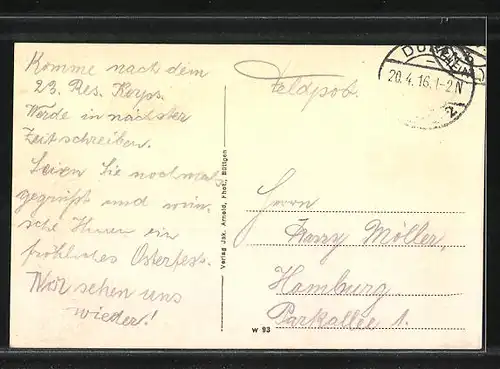 Komme nach dem
23. Res. Korps.
Werde in nächster
Zeit schreiben.
Seien Sie nochmals
gegrüßt und wün-
sche Ihnen ein
fröhliches Osterfest.
Wir sehen uns
wieder!
Verlag Jak. Arnold, Phot., Büttgen
Feldpost.
20.4.16.1-2N
Herrn
Harry Möller,
Hamburg
Parkallee 1.
W 93